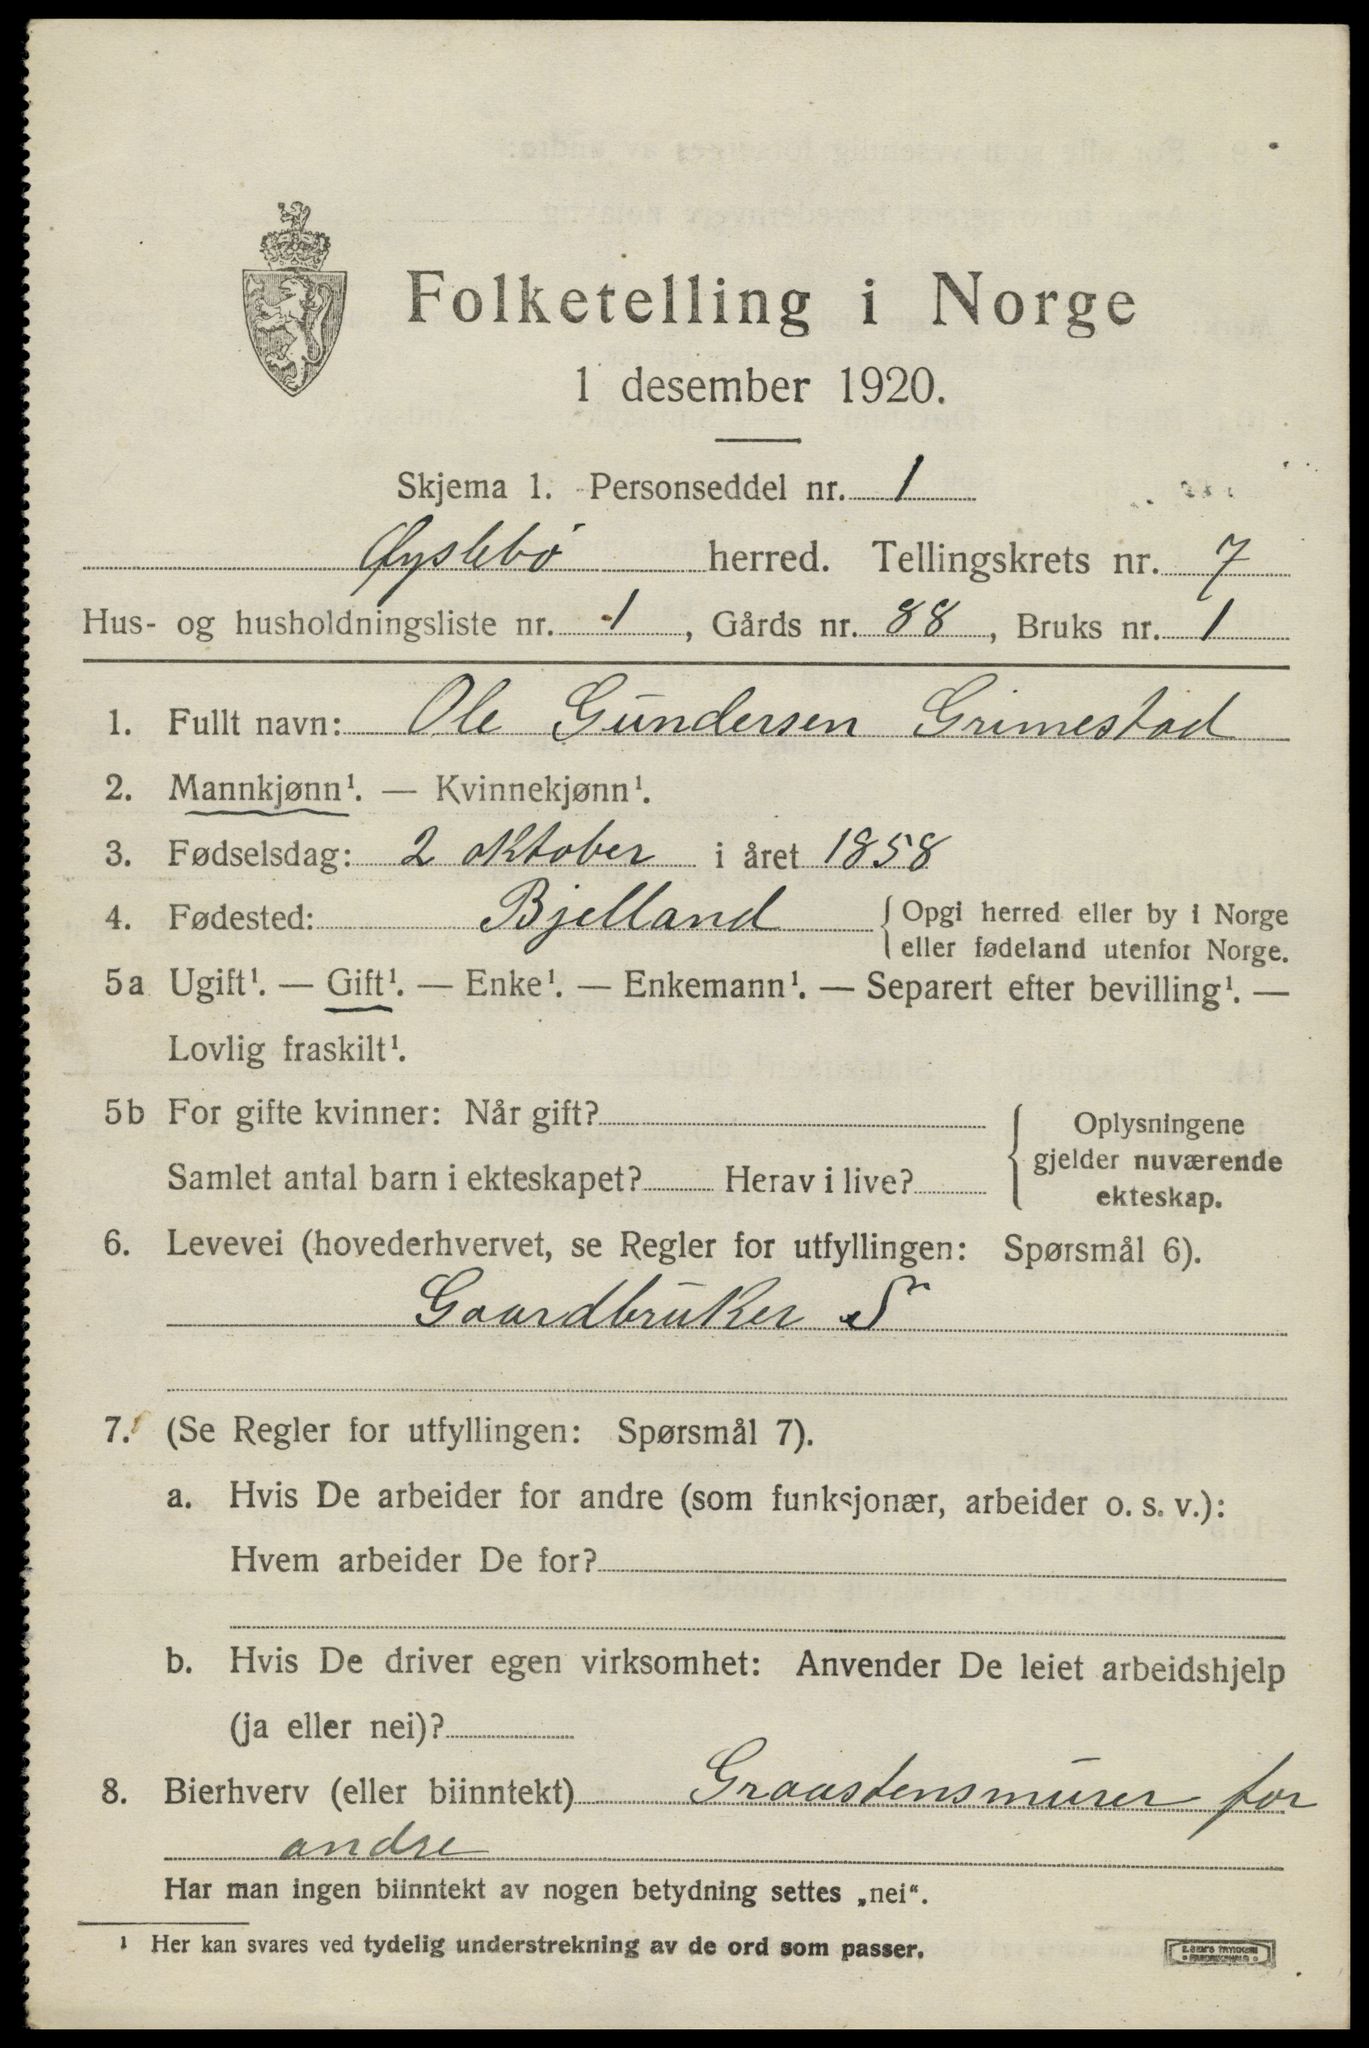 Folketelling i Norge
1 desember 1920.
Skjema 1. Personseddel nr. 1
Øyslebø herred. Tellingskrets nr. 7
Hus- og husholdningsliste nr. 1, Gårds nr. 88, Bruks nr. 1
1. Fullt navn: Ole Gundersen Grimestad
2. Mannkjønn¹. — Kvinnekjønn¹.
3. Fødselsdag: 2 oktober i året 1858
4. Fødested: Bjelland { Opgi herred eller by i Norge
eller fødeland utenfor Norge.
5a Ugift¹. — Gift¹. — Enke¹. — Enkemann¹. — Separert efter bevilling¹. —
Lovlig fraskilt¹.
5b For gifte kvinner: Når gift?
Samlet antal barn i ekteskapet? Herav i live?
{ Oplysningene
gjelder nuværende
ekteskap.
6. Levevei (hovederhvervet, se Regler for utfyllingen: Spørsmål 6).
Gaardbruker S
7. (Se Regler for utfyllingen: Spørsmål 7).
a. Hvis De arbeider for andre (som funksjonær, arbeider o. s. v.):
Hvem arbeider De for?
b. Hvis De driver egen virksomhet: Anvender De leiet arbeidshjelp
(ja eller nei)?
8. Bierhverv (eller biinntekt) Graastensmurer for
andre
Har man ingen biinntekt av nogen betydning settes „nei“.
¹ Her kan svares ved tydelig understrekning av de ord som passer.